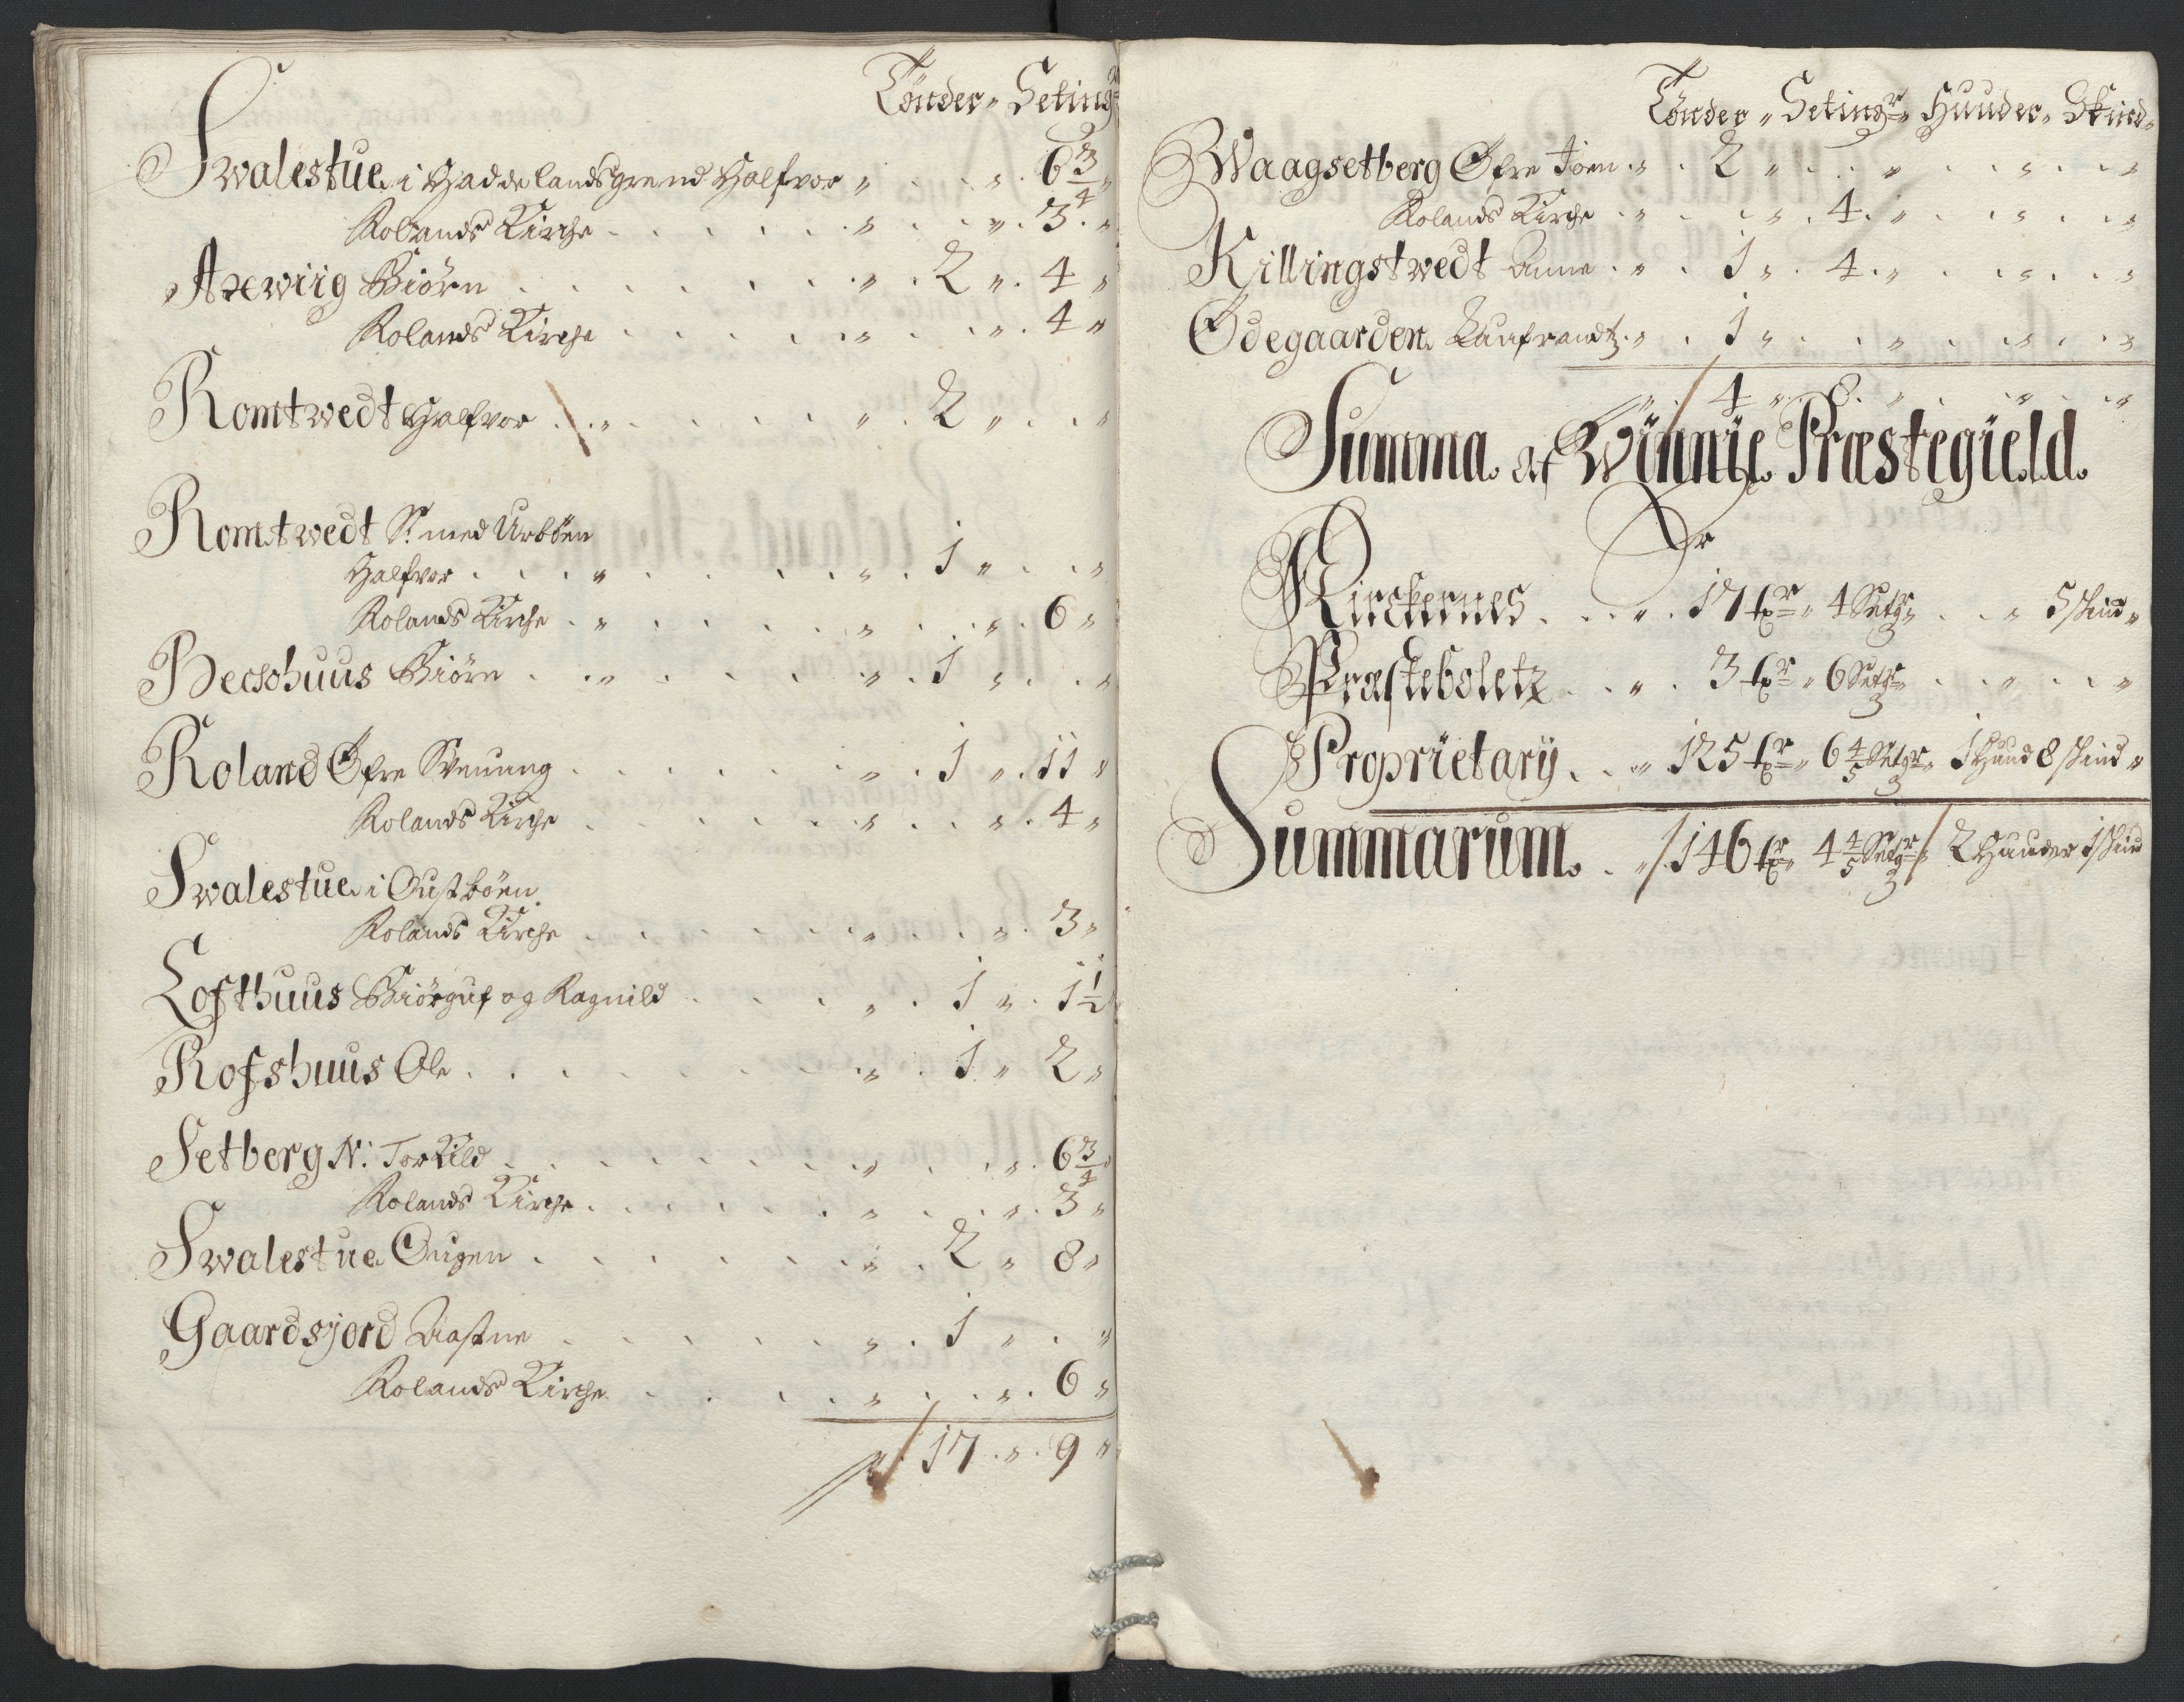 Tønder „ Seting
Swalestue i Haddelandsgrend Halfvor „ . . „ 6 3/4 „
Rolands Kirche . . . . . . „ . . „ . 3 . „
Axewiig Biörn . . . . . . . „ . 2 „ . 4 „
Rolands Kirche . . . . „ . . „ . 4 „
Romtwedt Halfvor . . „ . . . . „ . 2 „ . . „
Romtwedt S: med Urböen
Halfvor . . . „ . . . . „ . 1 „ . . „
Rolands Kirche . „ . . . . „ . . „ . 6 „
Bechshuus Biörn . . „ . . . . „ . 1 „ . . „
Roland Øfre Svenung . . . . . . „ . 1 „ . 11 „
Rolands Kirche . . . . . . „ . . „ . 4 „
Swalestue i Oustböen
Rolands Kirche . . . . . „ . . „ . 3 „
Lofthuus Biörguf og Ragnild . . . . „ . 1 „ . 1 1/2
Rofshuus Ole . . . . . . . . „ . 1 „ 2 „
Setberg N: Torkild . . . . . . . „ . . „ . 6 3/4
Rolands Kirche . . . . . . „ . . „ . 3 „
Swalestue Ougen . . . . . . „ . 2 „ 8 „
Gaardsjord Aafne . . . . . . „ . 1 „ . „
Rolands Kirche . . . . „ . . „ . 6 „
„ 17 . „ . 9 „
Tønder „ Setingr „ Huuder „ Skind „
Waagsetberg Øfre Joen . „ . 2 „ . . „ . . „ . . „
Rolands Kirche . „ . . „ . 4 . „ . . „ . . „
Killingstwedt Anne . „ . 1 „ . 4 . „ . . „ . . „
Ödegaarden Laufrandtz . „ . 1 „ . . „ . . „ . . „
„ . 4 „ . 8 . „ . . „ . . „
Summa af Winnie Præstegield
Er
Kirckernes . . . „ . 17 tr „ 4 Setgr „ . . „ 5 skind „
Præsteboletz . . „ . 3 tr „ 6 Setgr „ . . „ . . „
Proprietary . . „ 125 tr „ 6 4/5 Setgr „ 1 Huud 8 skind „
Summarum . „ 146 tr „ 4 4/5 Setgr „ 2 Huuder 1 skind